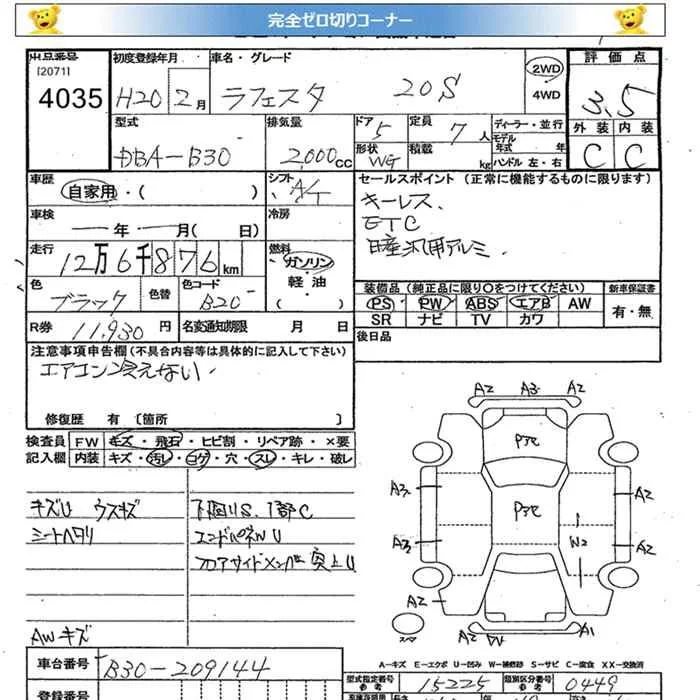 完全ゼロ切りコーナー
出品番号 初度登録年月 車名・グレード 2WD 評価点
[2071]
4035 H20 2月 ラフェスタ 20S 4WD 3.5
型式 排気量 ドア 5 定員 7人 ディーラー・並行 外装 内装
モデル年式 年
DBA-B30 2,000cc 形状 WG 積載 kg ハンドル 左・右 C C
車歴 シフト AT セールスポイント (正常に機能するものに限ります)
自家用・( )
キーレス、
車検 冷房
ETC
年 月( 日)
日産汎用アルミ、
走行 燃料
12万6千876km ガソリン・
軽油・
( )
色 色替 色コード 装備品(純正品に限り〇をつけてください) 新車保証書
ブラック B20 PS PW ABS エアB AW 有・無
SR ナビ TV カワ
R券 11,930円 名変通知期限 月 日 後日品
注意事項申告欄(不具合内容等は具体的に記入して下さい)
エアコン冷えない.
修復歴 有〔箇所 〕
検査員 FW キズ・飛石・ヒビ割・リペア跡・×要
記入欄 内装 キズ・汚れ・コゲ・穴・スレ・キレ・破レ
キズU ウスキズ
シートヘタリ
下回りS.1部C
エンドパネルU
フロアサイドメンバー突上U
AWキズ
A2 A3 A2
Pアセ
A3 A2
Pアセ
A3 W2 A2
A2 A2
スペア A2 A2
A-キズ E-エクボ U-凹み W-補修跡 S-サビ C-腐食 XX-交換済
車台番号 B30-209144
型式指定番号 参考 15225 類別区分番号 参考 0449
登録番号